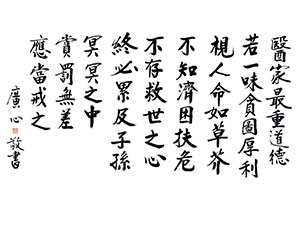 醫家最重道德
若一味貪圖厚利
視人命如草芥
不知濟困扶危
不存救世之心
終必累及子孫
冥冥之中
賞罰無差
應當戒之
廣心敬書